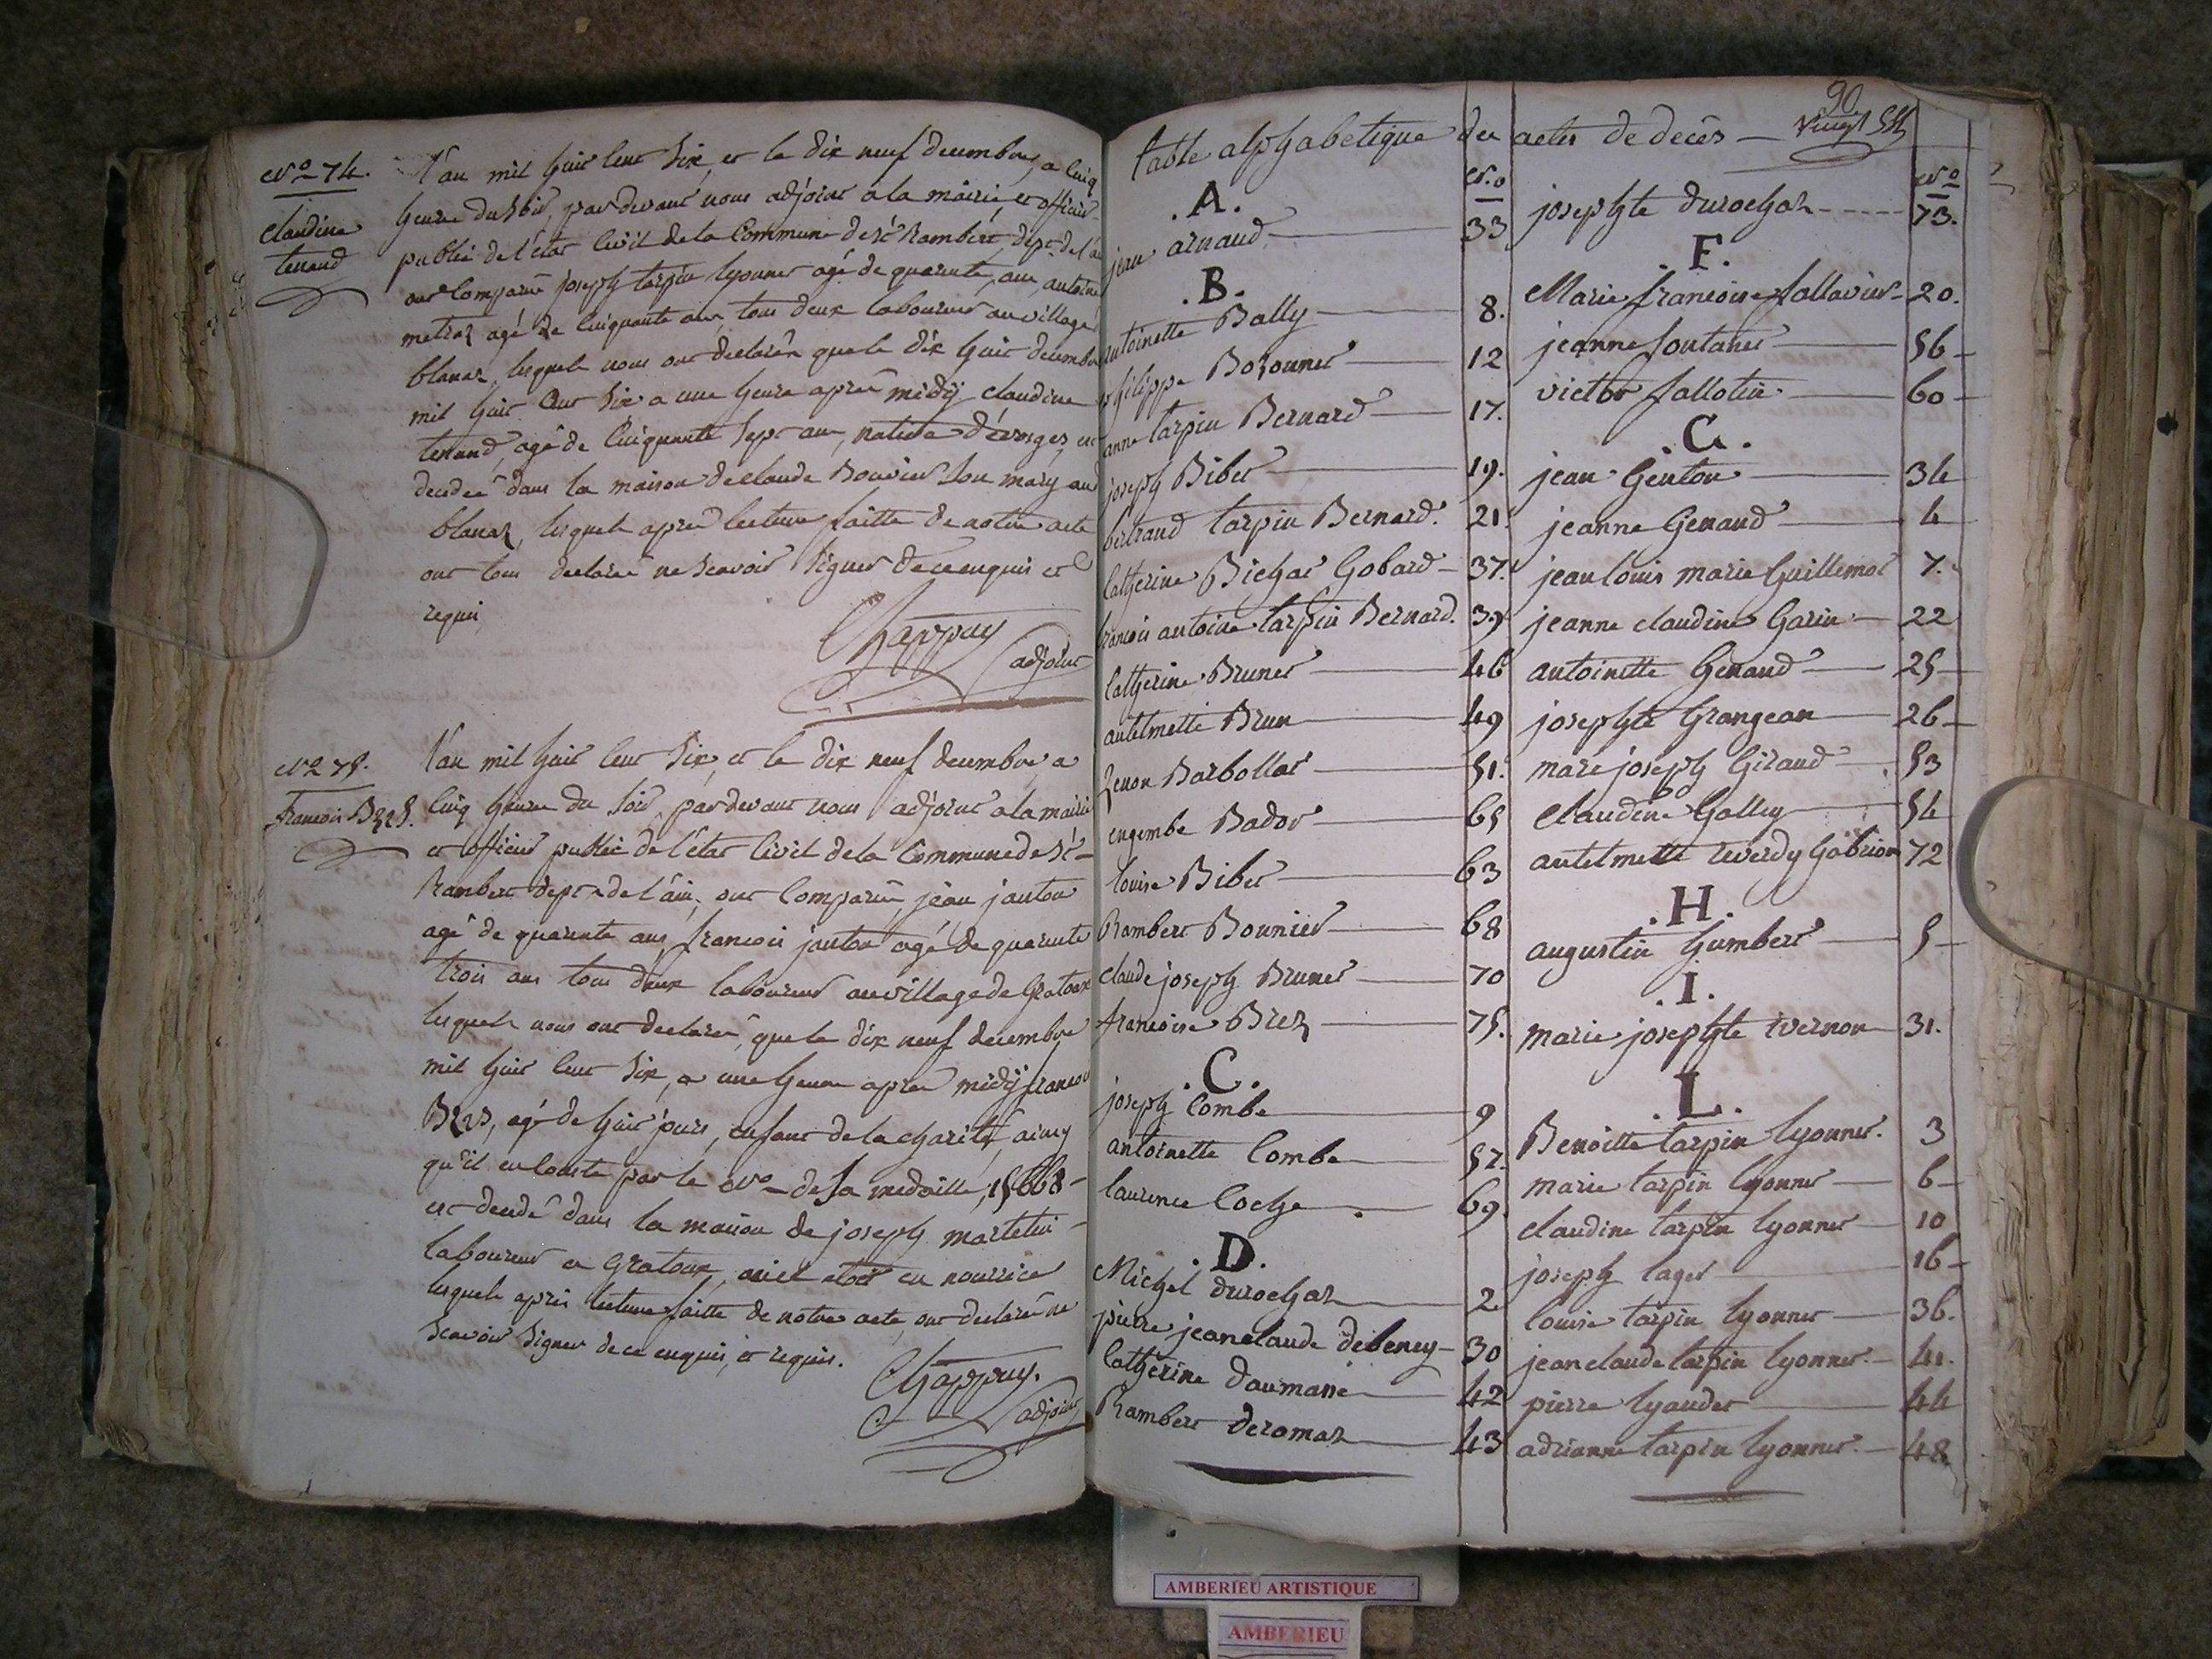 N.o 74.
Claudine
tenand
L'an mil huit cent six, et le dix neuf decembre, a cinq
heures du soir, pardevant nous adjoint a la mairie, et officier
public de l'état civil de la commune de st Rambert, dept de l'ain
ont comparu joseph tarpin lyonnet agé de quarante ans, antoine
metraz agé de cinquante ans, tous deux laboureurs au village
blanaz, lesquels nous ont declarés que le dix huit decembre
mil huit cent six a une heure après midÿ claudine
tenand, agé de cinquante sept ans, native d'évosges, est
decedeé dans la maison de claude Bouvier son mary aud
blanaz, lesquels apres lecture faitte de notre acte
ont tous declaré ne scavoir signer de ce enquis et
requis
Chappuy
adjoint
N.o 75.
francois
L'an mil huit cent six, et le dix neuf decembre, a
cinq heures du soir, pardevant nous adjoint a la mairie
et officier public de l'état civil de la commune de st
Rambert dept de l'ain, ont comparu, jean janton
agé de quarante ans, francois janton agé de quarante
trois ans tous deux laboureurs au village de Gratoux
lesquels nous ont declaré, que le dix neuf decembre
mil huit cent six, a une heure apres midÿ francois
agé de huit jours, enfant de la charité, ainsy
qu'il en conste par le N.o de sa medaille, 15668
est decedé dans la maison de joseph martelin
laboureur a Gratoux, ou il etoit en nourrice
lesquels apres lecture faitte de notre acte, ont declaré ne
scavoir signer de ce enquis, et requis.
Chappuy.
adjoint
90
vingt
table alphabetique des actes de decès
N.o
.A.
jean arnaud 33
.B.
antoinette Bally 8.
philippe Bozonnet 12
anne tarpin Bernard 17.
joseph Bibet 19.
bertrand tarpin Bernard. 21.
Catherine Bichat Gobard 37.
francois antoine tarpin Bernard. 39
Catherine Brunet 46
antelmette Brun 49
Zenon Barbollat 51.
engembe Bador 65
louise Bibet 63
Rambert Bonnier 68
claude joseph Brunet 70
francoise Brez 75.
.C.
joseph Combe 9
antoinette Combe 57.
laurence Coche 69.
.D.
Michel durochat 2
pierre jean claude debeney 30
Catherine daumasse 42
Rambert deromaz 43
N.o
josephte durochat 73.
.F.
Marie francoise fallavier 20.
jeanne fontanet 56
victor fallotin 60
.G.
jean Genton 34
jeanne Genaud 4
jean louis marie Guillemot 7.
jeanne claudine Garin 22
antoinette Genaud 25
josephte Grangean 26
marie joseph Giraud 53
Claudine Galley 54
antelmette reverdy Gabrion 72
.H.
augustin humbert 5
.I.
marie josephte ivernon 31.
.L.
Benoitte tarpin lyonnet. 3
marie tarpin lyonnet 6
claudine tarpin lyonnet 10
joseph laget 16
louise tarpin lyonnet 36.
jean claude tarpin lyonnet. 41.
pierre lyaudet 44
adrianne tarpin lyonnet. 48
AMBERIEU ARTISTIQUE
AMBERIEU